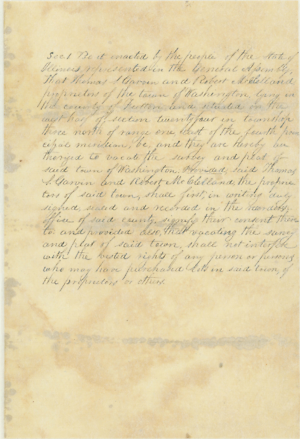 Sec 1 Be it enacted by the people of the State of
Illinois represented in the General Assembly,
That Thomas S Garvin and Robert McClelland
proprietors of the town of Washington lying in
the county of and situated on the
east half of section twentyfour in township
three north of range one east of the fourth prin
cipal meridian, be, and they are hereby au
thorized to vacate the survey and plat of
said town of Washington Provided, said Thomas
S Garvin and Robert McClelland, the proprie
tors of said town, shall first, in writing duly
sealed and recorded in the Recorders
office of said county signify their consent there
to and provided also, that vacating the survey
and plat of said town, shall not interfere
with the vested rights of any person or persons
who may have purchased lots in said town, of
the proprietors or others.